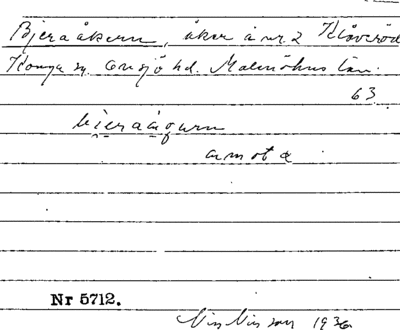 Bjeraåkern, åker å nr 2 Klåveröd
Konga sn. Onsjö hd. Malmöhus län.
63
bieraågurn
armot a
Nr 5712.
Nils Nilsson 1936